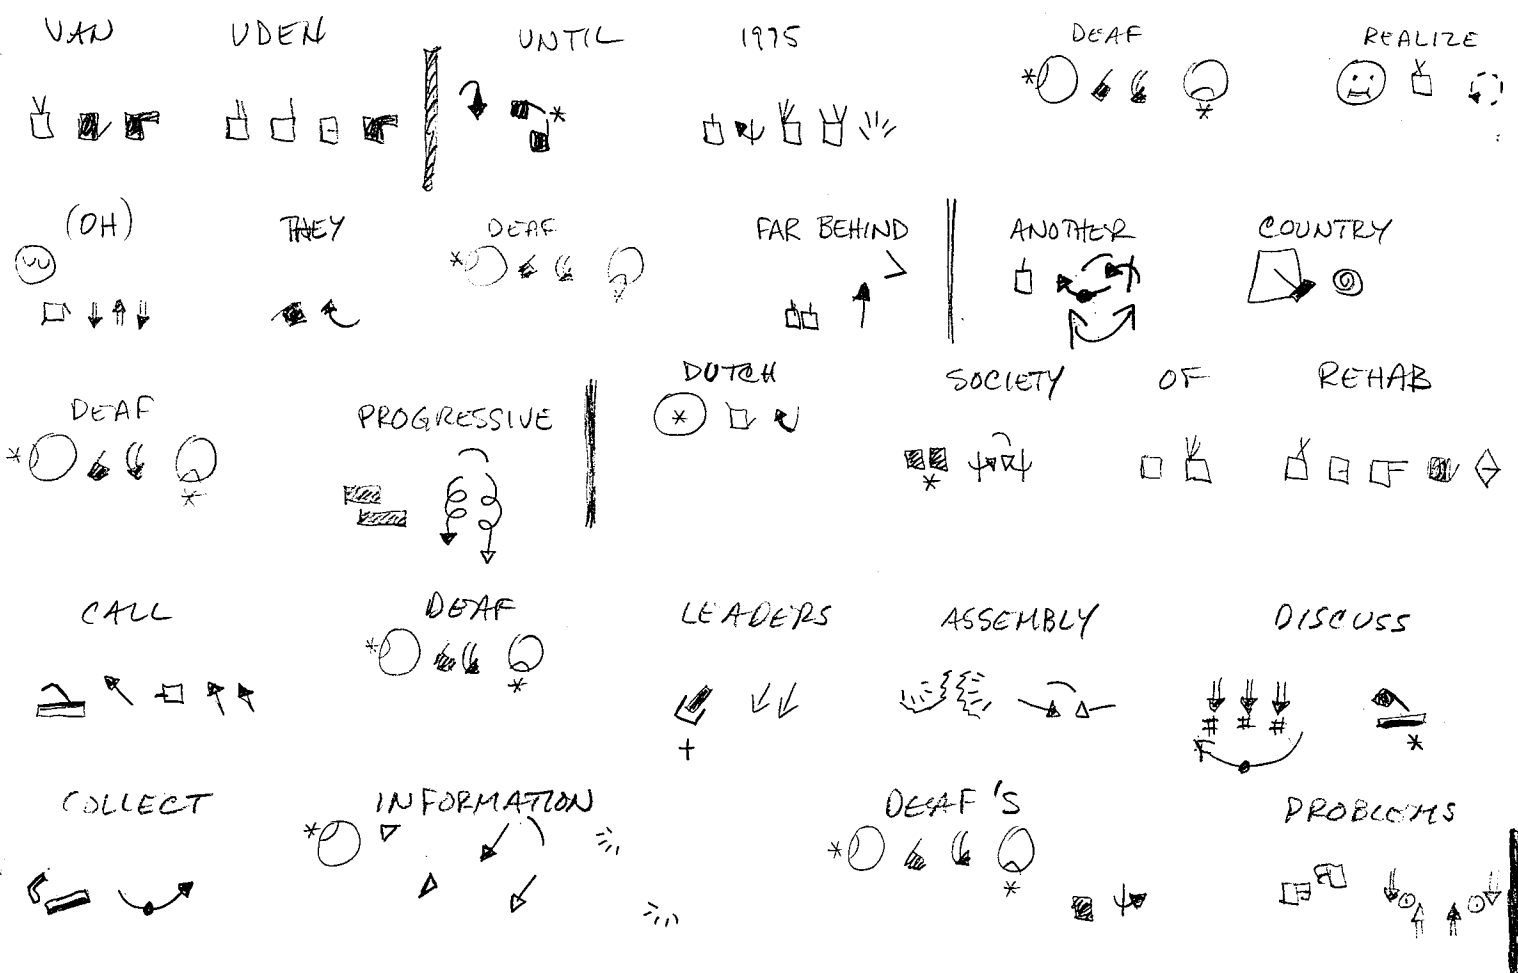 VAN UDEN UNTIL 1975 DEAF REALIZE
(OH) THEY DEAF FAR BEHIND ANOTHER COUNTRY
DEAF PROGRESSIVE DUTCH SOCIETY OF REHAB
CALL DEAF LEADERS ASSEMBLY DISCUSS
COLLECT INFORMATION DEAF'S PROBLEMS